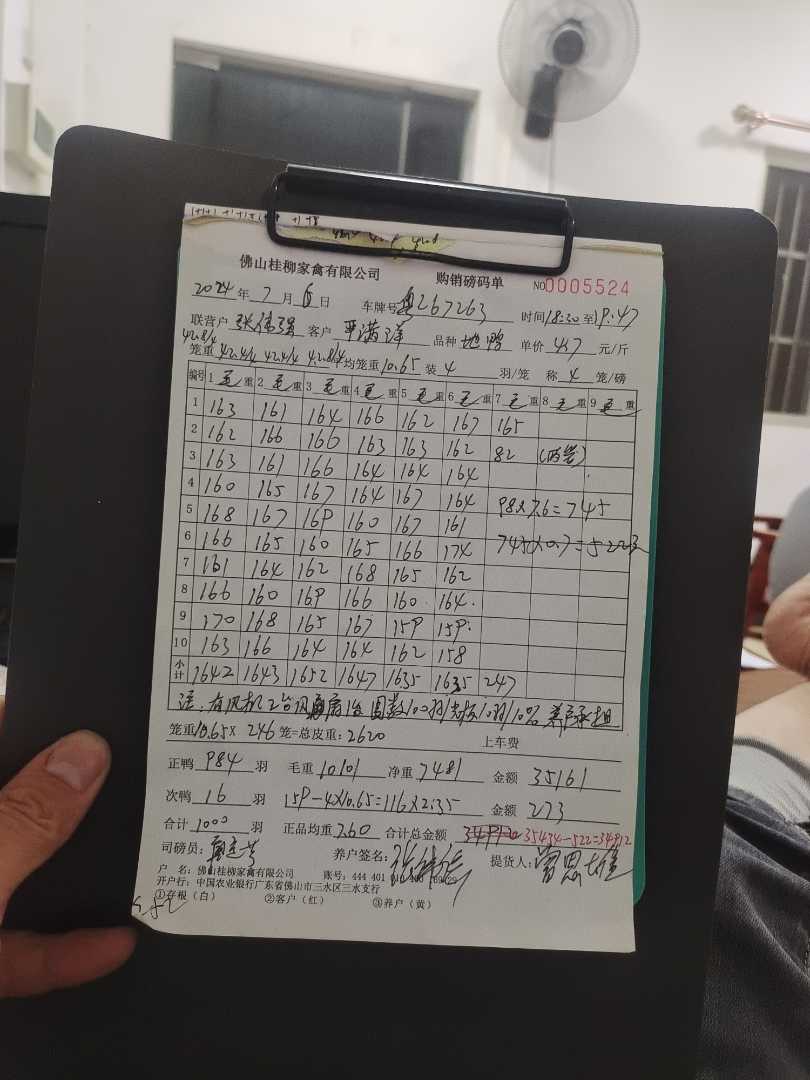 佛山桂柳家禽有限公司 购销磅码单 NO0005524
2024年7月6日 车牌号 粤267263 时间18:30至19:47
联营户 张伟强 客户 平满洋 品种 地鸭 单价 4.7 元/斤
42.8/4
笼重 42.4/4 42.4/4 42.8/4 平均笼重10.65 装 4 羽/笼 称 4 笼/磅
编号 1 毛重 2 毛重 3 毛重 4 毛重 5 毛重 6 毛重 7 毛重 8 毛重 9 毛重
1 163 161 164 166 162 167 165
2 162 166 166 163 163 162 82 (两笼)
3 163 161 166 164 164 164
4 160 165 167 164 167 164 98×7.6=745
5 168 167 169 160 167 161
6 166 165 160 165 166 174 745×0.7=522
7 161 164 162 168 165 162
8 166 160 169 166 160 164
9 170 168 165 167 159 159
10 163 166 164 164 162 158
小计 1642 1643 1652 1647 1635 1635 247
笼重10.65× 246 笼=总皮重: 2620 上车费
正鸭 984 羽 毛重 10101 净重 7481 金额 35161
次鸭 16 羽 159-4×10.65=116×2.35 金额 273
合计 1000 羽 正品均重 7.60 合计总金额 35434-522=34912
司磅员: 养户签名: 提货人:
户 名: 佛山桂柳家禽有限公司 账号: 444 401
开户行: 中国农业银行广东省佛山市三水区三水支行
①存根(白) ②客户(红) ③养户(黄)